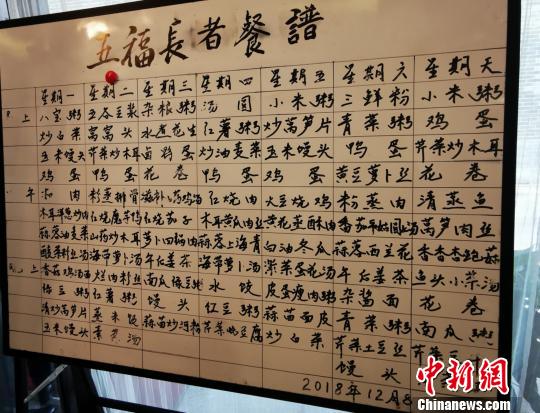 五福長者餐譜
星期一 星期二 星期三 星期四 星期五 星期六 星期天
早上 八宝粥 五谷豆浆 杂粮粥 汤圆 小米粥 三鲜粉 小米粥
炒白菜 窝窝头 水煮花生 红薯粥 炒莴笋片 青菜粥 鸡蛋
玉米馒头 芹菜炒木耳 卤鹑蛋 炒油麦菜 玉米馒头 鸭蛋 芹菜炒木耳
鸡蛋 鸭蛋 花卷 鸭蛋 鸡蛋 黄豆萝卜丝 花卷
午 扣肉 粉蒸排骨 红烧肉 大豆烧鸡 粉蒸肉 清蒸鱼
红烧茄子 木耳黄瓜肉丝 黄花菜酥肉 莴笋肉丝
蒜蓉油麦菜 山药炒木耳 萝卜回锅肉 蒜蓉上海青 白油冬瓜 蒜蓉西兰花 香香杏鲍菇
酸菜粉丝汤 海带萝卜汤 午后姜茶 海带萝卜汤 紫菜蛋花汤 午后姜茶 鱼头小菜汤
晚上 香菇鸡汤面 烂肉粉丝 南瓜绿豆粥 水饺 皮蛋瘦肉粥 杂酱面 花卷
绿豆粥 红薯粥 馒头 红豆粥 蒜苗面皮 青菜粥 南瓜粥
清炒莴笋片 蒸米饭 芹菜烧豆腐 炒白菜 芹菜土豆丝
玉米馒头 黄菜汤 馒头
2018年12月8
中新网
Chinanews.com